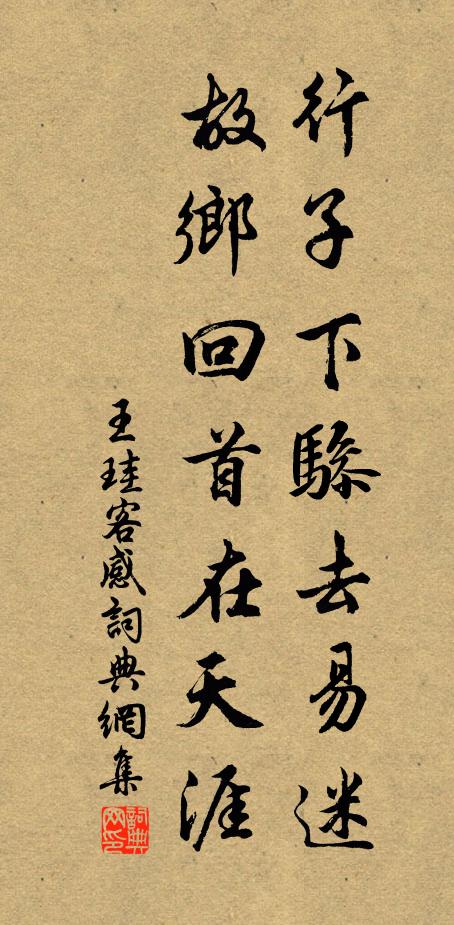 行子下驂去易迷
故鄉回首在天涯
王珪客感詞典網集
詞典网印